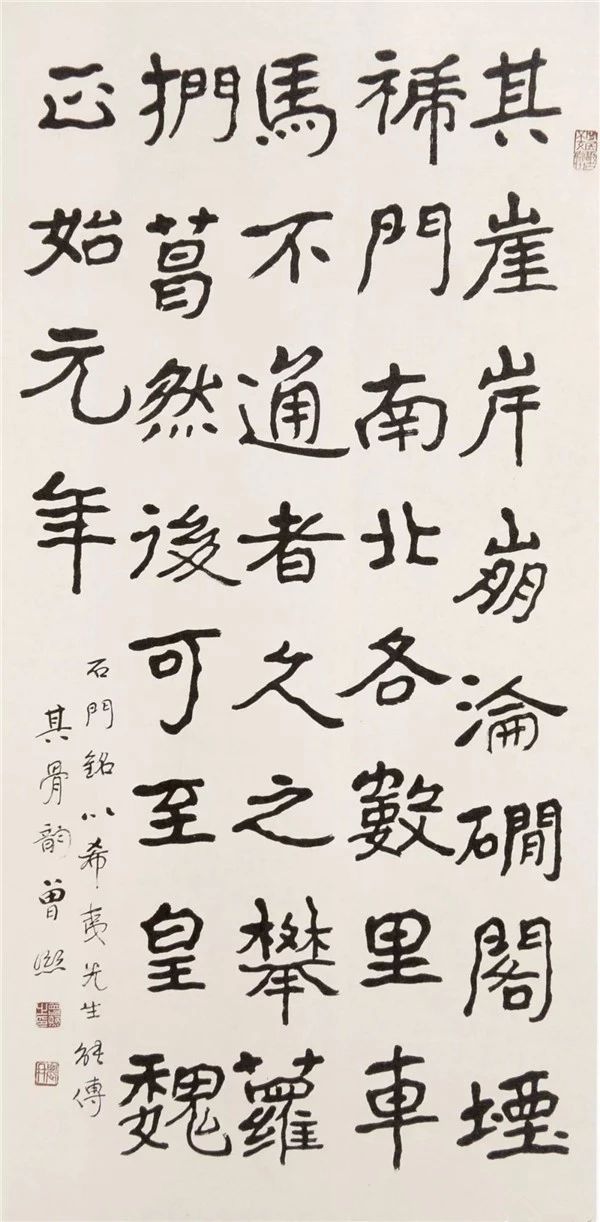 其崖岸崩淪磵閣堙
褫門南北各數里車
馬不通者久之攀蘿
捫葛然後可至皇魏
正始元年
石門銘以希夷先生能傳
其骨韵曾熙